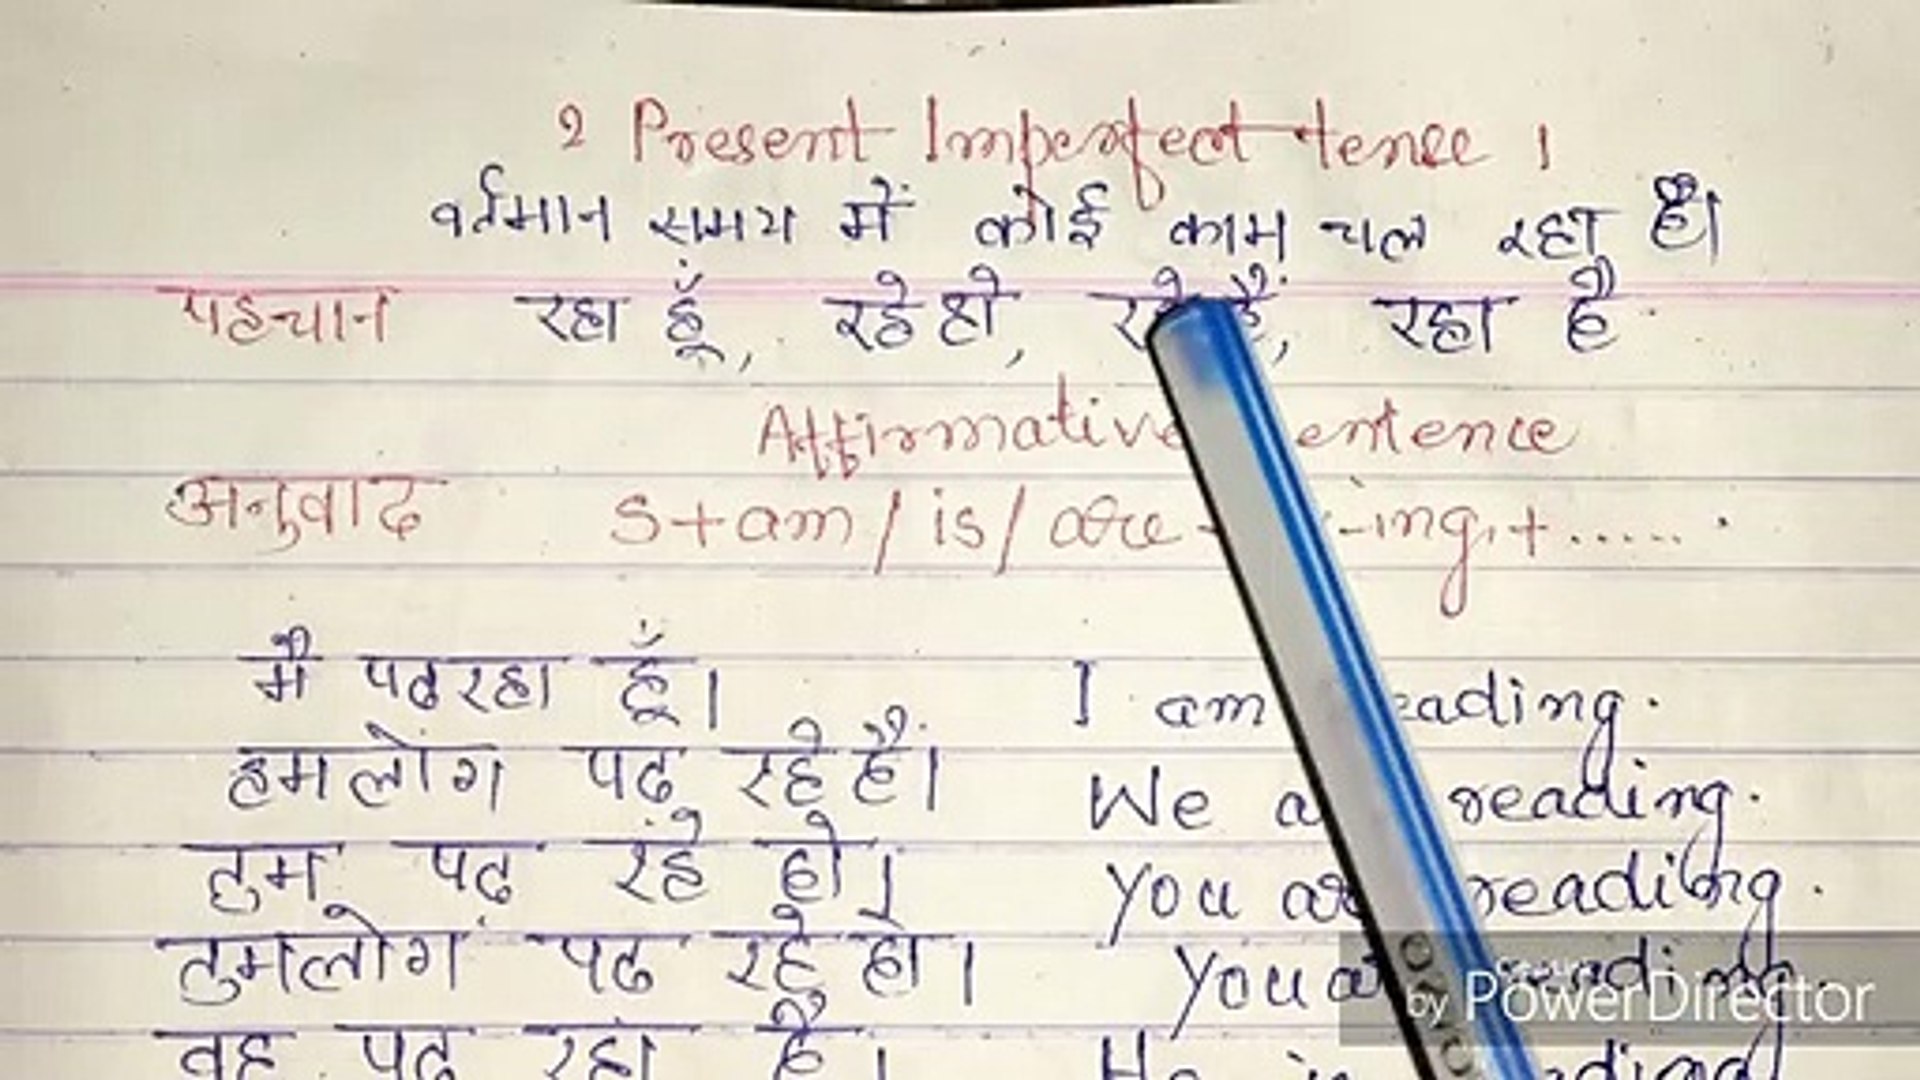 2 Present Imperfect tense ।
वर्तमान समय में कोई काम चल रहा है।
पहचान रहा हूँ, रहे हो, रहे हैं, रहा है.
Affirmative entence
अनुवाद S+am/is/are -ing,+.....
मै पढ रहा हूँ। I am eading.
हमलोग पढ़ रहे हैं। We a reading.
तुम पढ़ रहे हो। You are reading.
तुमलोग पढ रहे हो। You a reading.
by PowerDirector
वह पढ़ रहा है। He is